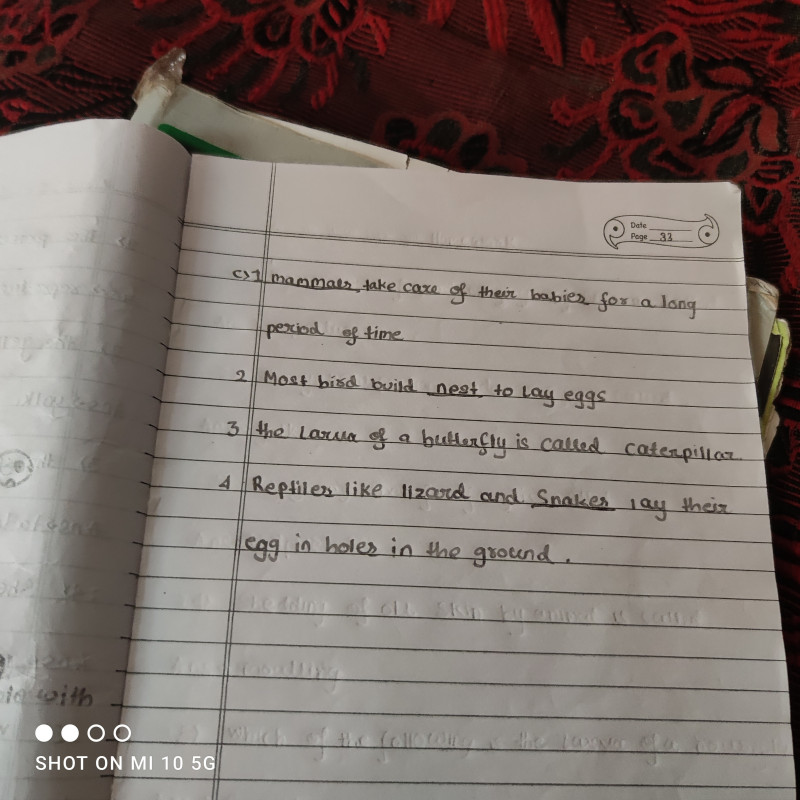 Date
Page 33
c) 1 mammals take care of their babies for a long
period of time
2 Most bird build nest to lay eggs
3 the larva of a butterfly is called caterpillar.
4 Reptiles like lizard and Snakes lay their
egg in holes in the ground.
with
SHOT ON MI 10 5G